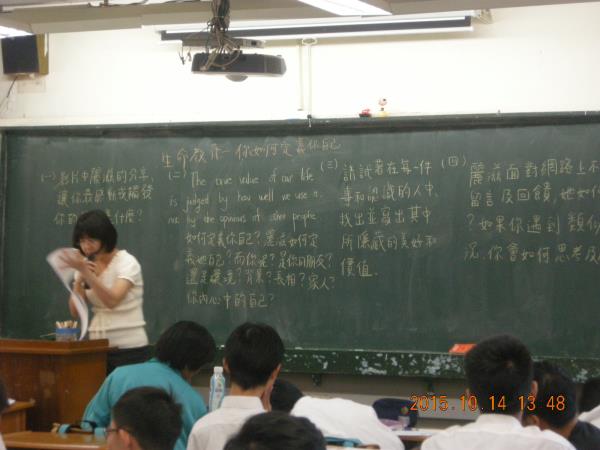 生命教育—你如何定義你自己
(一)影片中麗滋的分享,
讓你最感動或觸發
你的 是什麼?
(二) The true value of our life
is judged by how well we use it,
not by the opinions of other people
如何定義你自己?麗滋如何定
義她自己?而你呢?是你的朋友?
還是環境?背景?長相?家人?
你內心中的自己?
(三) 請試著在每一件
事和認識的人中,
找出並寫出其中
所隱藏的美好和
價值.
(四) 麗滋面對網路上不
留言及回饋,她如何
?如果你遇到類似
況,你會如何思考及
2015.10.14 13:48